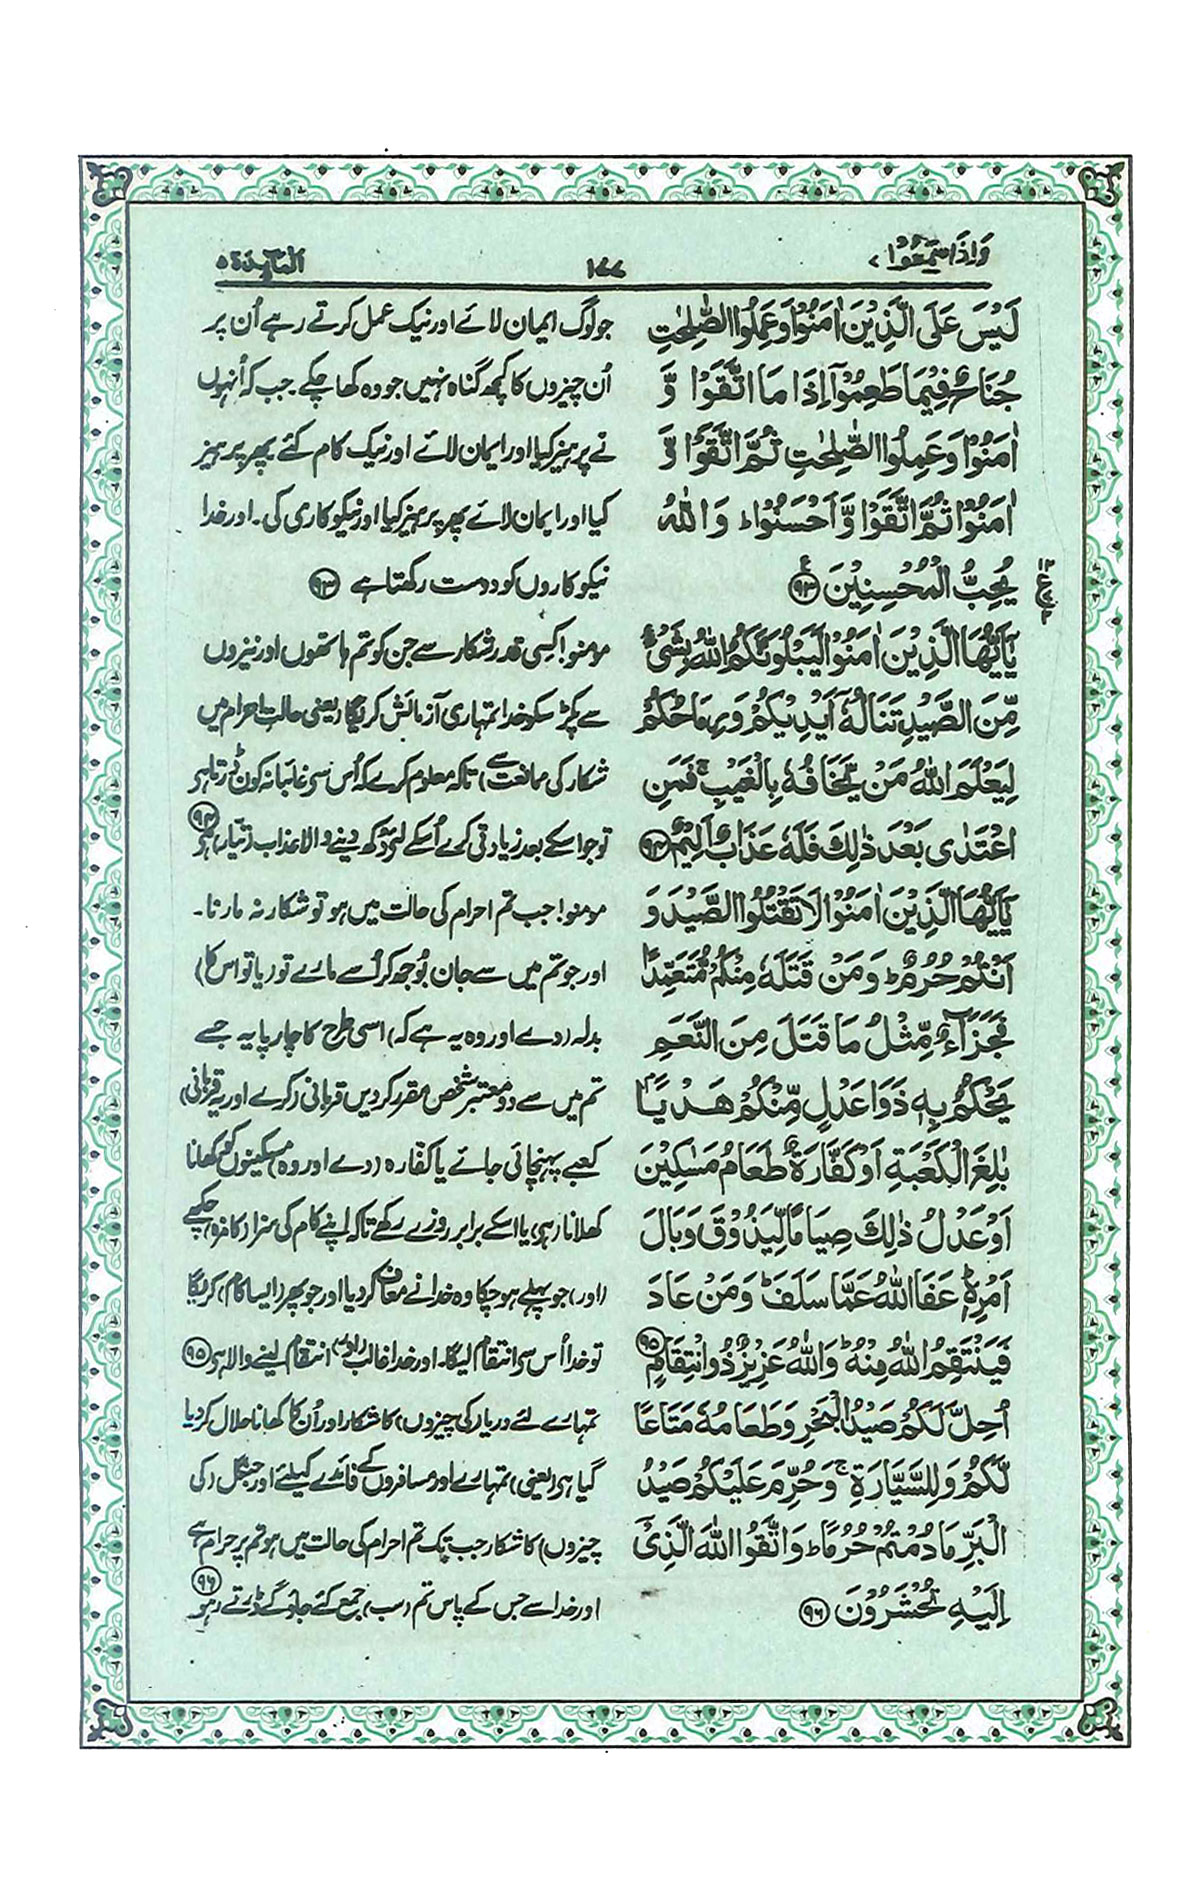 وَاِذَا سَمِعُوْا ۷
۱۷۷
المَآئِدَة ۵
لَیْسَ عَلَی الَّذِیْنَ اٰمَنُوْا وَعَمِلُوا الصّٰلِحٰتِ
جُنَاحٌ فِیْمَا طَعِمُوْۤا اِذَا مَا اتَّقَوْا وَّ
اٰمَنُوْا وَعَمِلُوا الصّٰلِحٰتِ ثُمَّ اتَّقَوْا وَّ
اٰمَنُوْا ثُمَّ اتَّقَوْا وَّاَحْسَنُوْا ؕ وَاللّٰهُ
یُحِبُّ الْمُحْسِنِیْنَ ۹۳ ع
یٰۤاَیُّهَا الَّذِیْنَ اٰمَنُوْا لَیَبْلُوَنَّكُمُ اللّٰهُ بِشَیْءٍ
مِّنَ الصَّیْدِ تَنَالُهٗۤ اَیْدِیْكُمْ وَرِمَاحُكُمْ
لِیَعْلَمَ اللّٰهُ مَنْ یَّخَافُهٗ بِالْغَیْبِ ۚ فَمَنِ
اعْتَدٰی بَعْدَ ذٰلِكَ فَلَهٗ عَذَابٌ اَلِیْمٌ ۹۴
یٰۤاَیُّهَا الَّذِیْنَ اٰمَنُوْا لَا تَقْتُلُوا الصَّیْدَ وَ
اَنْتُمْ حُرُمٌ ؕ وَمَنْ قَتَلَهٗ مِنْكُمْ مُّتَعَمِّدًا
فَجَزَآءٌ مِّثْلُ مَا قَتَلَ مِنَ النَّعَمِ
یَحْكُمُ بِهٖ ذَوَا عَدْلٍ مِّنْكُمْ هَدْیًۢا
بٰلِغَ الْكَعْبَةِ اَوْ كَفَّارَةٌ طَعَامُ مَسٰكِیْنَ
اَوْ عَدْلُ ذٰلِكَ صِیَامًا لِّیَذُوْقَ وَبَالَ
اَمْرِهٖ ؕ عَفَا اللّٰهُ عَمَّا سَلَفَ ؕ وَمَنْ عَادَ
فَیَنْتَقِمُ اللّٰهُ مِنْهُ ؕ وَاللّٰهُ عَزِیْزٌ ذُو انْتِقَامٍ ۹۵
اُحِلَّ لَكُمْ صَیْدُ الْبَحْرِ وَطَعَامُهٗ مَتَاعًا
لَّكُمْ وَلِلسَّیَّارَةِ ۚ وَحُرِّمَ عَلَیْكُمْ صَیْدُ
الْبَرِّ مَا دُمْتُمْ حُرُمًا ؕ وَاتَّقُوا اللّٰهَ الَّذِیْۤ
اِلَیْهِ تُحْشَرُوْنَ ۹۶
جو لوگ ایمان لائے اور نیک عمل کرتے رہے اُن پر
اُن چیزوں کا کچھ گناہ نہیں جو وہ کھا چکے۔ جب کہ اُنہوں
نے پرہیز کیا اور ایمان لائے اور نیک کام کئے پھر پرہیز
کیا اور ایمان لائے پھر پرہیز کیا اور نیکوکاری کی۔ اور خدا
نیکوکاروں کو دوست رکھتا ہے ۹۳
مومنو! کسی قدر شکار سے جن کو تم ہاتھوں اور نیزوں
سے پکڑ سکو خدا تمہاری آزمائش کریگا (یعنی حالتِ احرام میں
شکار کی ممانعت سے) تاکہ معلوم کرے کہ اُس سے غائبانہ کون ڈرتا ہے
تو جو اسکے بعد زیادتی کرے اُسکے لئے دُکھ دینے والا عذاب (تیار) ہے ۹۴
مومنو! جب تم احرام کی حالت میں ہو تو شکار نہ مارنا۔
اور جو تم میں سے جان بُوجھ کر اُسے مارے تو (یا تو اس کا)
بدلہ (دے اور وہ یہ ہے کہ) اسی طرح کا چارپایہ جسے
تم میں سے دو معتبر شخص مقرر کر دیں قربانی (کرے اور یہ قربانی)
کعبے پہنچائی جائے یا کفّارہ (دے اور وہ) مسکینوں کو کھانا
کھلانا (ہے) یا اسکے برابر روزے رکھے تاکہ اپنے کام کی سزا (کا مزہ) چکھے
(اور) جو پہلے ہو چکا وہ خدا نے معاف کر دیا اور جو پھر (ایسا کام) کریگا
تو خدا اُس سے انتقام لیگا۔ اور خدا غالب (اور) انتقام لینے والا ہے ۹۵
تمہارے لئے دریا (کی چیزوں) کا شکار اور اُن کا کھانا حلال کر دیا
گیا ہے (یعنی) تمہارے اور مسافروں کے فائدے کیلئے اور جنگل (کی
چیزوں) کا شکار جب تک تم احرام کی حالت میں ہو تم پر حرام ہے
اور خدا سے جس کے پاس تم (سب) جمع کئے جاؤ گے ڈرتے رہو ۹۶